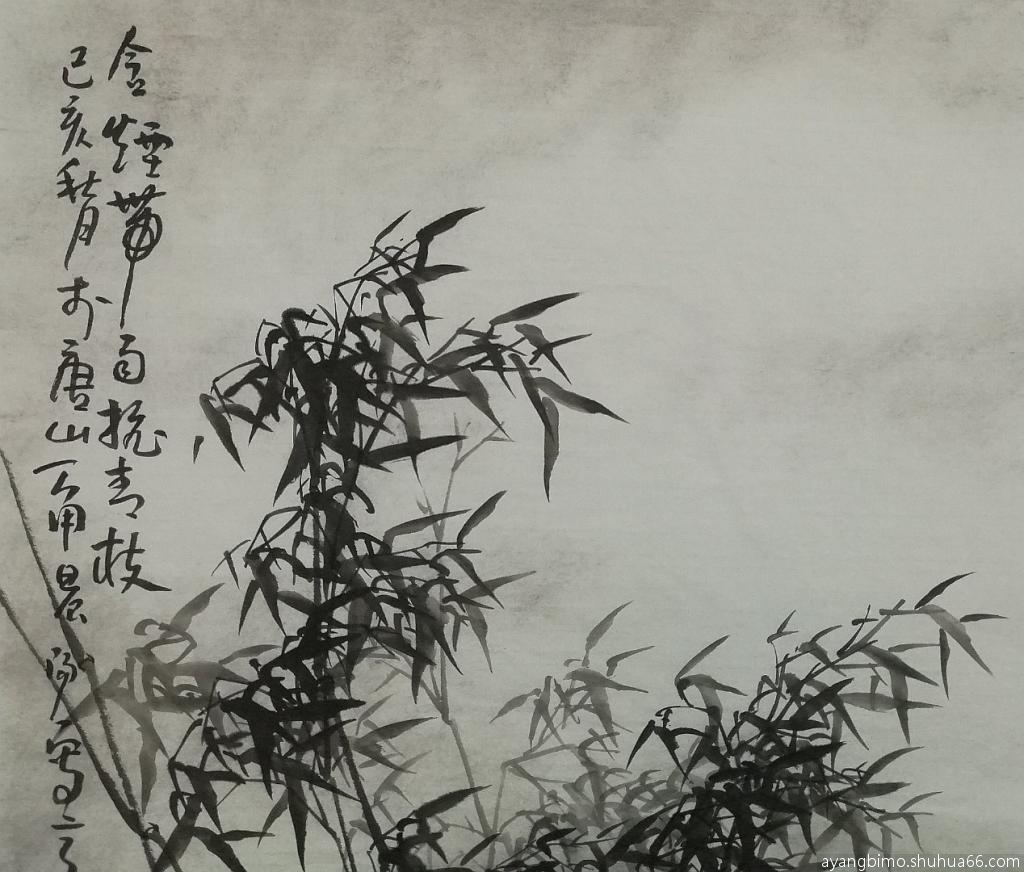 含煙帶雨青枝
己亥秋月於唐山寫
ayangbimo.shuhua66.com